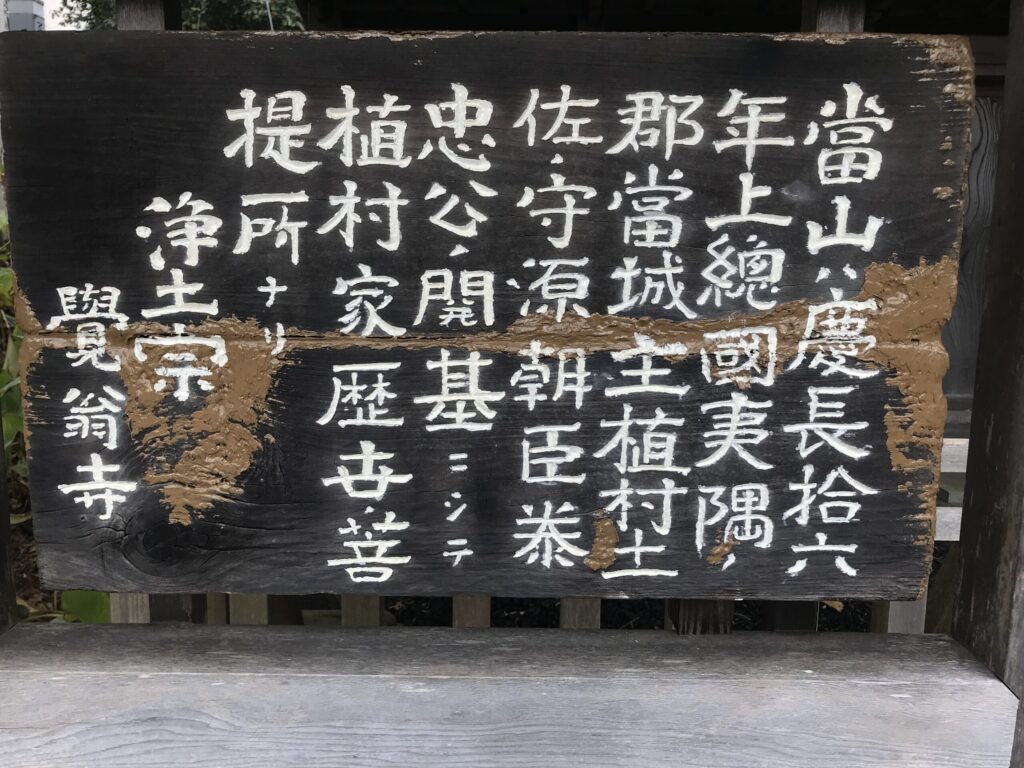 當山ハ慶長拾六
年上總國夷隅ノ
郡當城主植村土
佐ノ守源朝臣泰
忠公ノ開基ニシテ
植村家歴世ノ菩
提所ナリ
浄土宗
覺翁寺